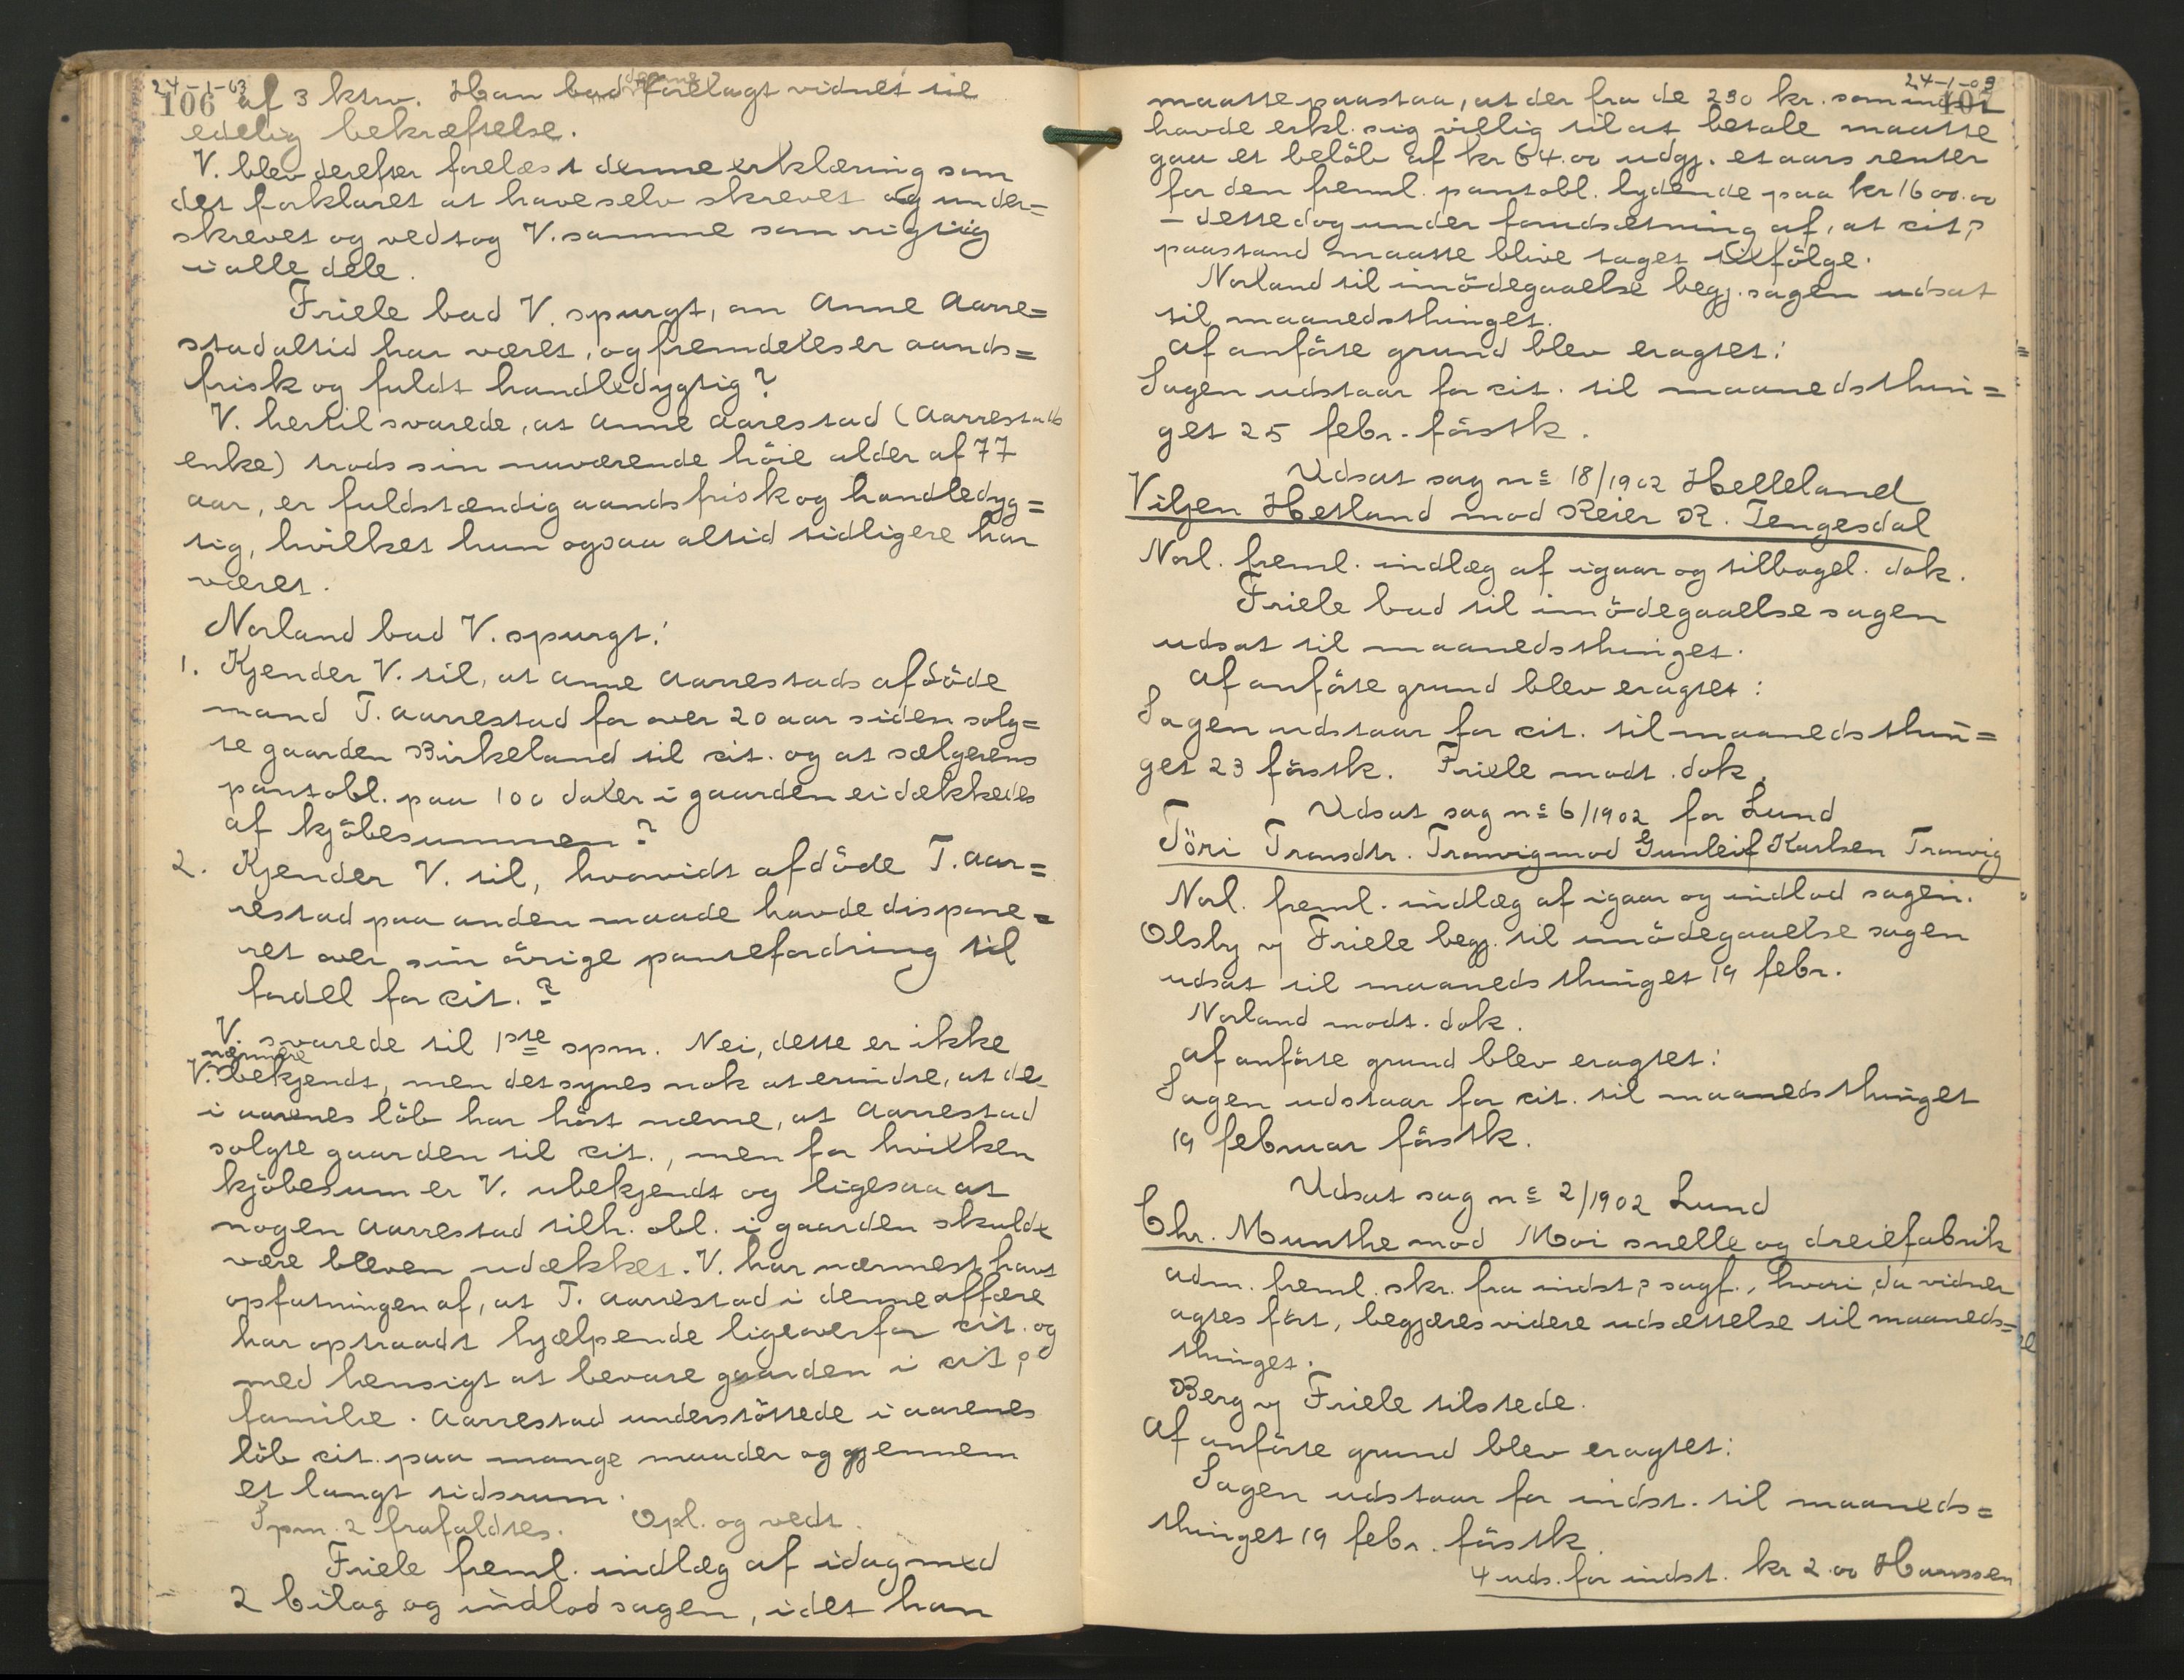 24-1-03
106 af 3 ktrv. Han bad denne forelagt vidnet til
edelig bekræftelse.
V. blev derefter forelæst denne erklæring som
det forklaret at have selv skrevet og under=
skrevet og vedtog V. samme som rigtiig
i alle dele.
Friele bad V. spurgt, om Anne Aarre=
stad altid har været, og fremdeles er aands=
frisk og fuldt handledygtig?
V. hertil svarede, at Anne Aarestad (Aarrestads
enke) trods sin nuværende höie alder af 77
aar, er fuldstændig aandsfrisk og handledyg=
tig, hvilket hun ogsaa altid tidligere har
været.
Norland bad V. spurgt:
1. Kjender V. til, at Anne Aarrestads afdöde
mand T. Aarrestad for over 20 aar siden solg=
te gaarden Birkeland til cit. og at sælgerens
pantobl. paa 100 daler i gaarden ei dækkedes
af kjöbesummen?
2. Kjender V. til, hvorvidt afdöde T. Aar=
restad paa anden maade havde dispone=
ret over sin övrige pantefordring til
fordel for cit.?
V. svarede til 1ste spm. Nei, dette er ikke
nærmere
V. bekjendt, men det synes nok at erindre, at det
i aarenes löb har hört nævne, at Aarrestad
solgte gaarden til cit., men for hvilken
kjöbesum er V. ubekjendt og ligesaa at
nogen Aarrestad tilh. obl. i gaarden skulde
være bleven udækket. V. har nærmest havt
opfatningen af, at T. Aarrestad i denne affære
har optraadt hjælpende ligeoverfor cit. og
med hensigt at bevare gaarden i cit.s
familie. Aarrestad understöttede i aarenes
löb cit. paa mange maader og gjennem
et langt tidsrum.
Spm. 2 frafaldtes. Opl. og vedt.
Friele freml. indlæg af idag med
2 bilag og indlod sagen, idet han
24-1-03
107
maatte paastaa, at der fra de 230 kr. som indst
havde erkl. sig villig til at betale maatte
gaa et belöb af kr 64.00 udgj. et aars renter
for den freml. pantobl. lydende paa kr 1600.00
- dette dog under forudsætning af, at cit.s
paastand maatte blive taget tilfölge.
Norland til imödegaaelse begj. sagen udsat
til maanedsthinget.
Af anförte grund blev eragtet:
Sagen udstaar for cit. til maanedsthin=
get 25 febr. förstk.
Udsat sag no 18/1902 Helleland
Viljen Hetland mod Reier R. Tengesdal
Norl. freml. indlæg af igaar og tilbagel. dok.
Friele bad til imödegaaelse sagen
udsat til maanedsthinget.
Af anförte grund blev eragtet:
Sagen udstaar for cit. til maanedsthin=
get 23 förstk. Friele modt. dok.
Udsat sag no 6/1902 for Lund
Töri Trondtr. Tronvig mod Gunleif Karlsen Tronvig
Norl. freml. indlæg af igaar og indlod sagen.
Olsby v/ Friele begj. til imödegaaelse sagen
udsat til maanedsthinget 19 febr.
Norland modt. dok.
Af anförte grund blev eragtet:
Sagen udstaar for cit. til maanedsthinget
19 februar förstk.
Udsat sag no 2/1902 Lund
Chr. Munthe mod Moi snelle og dreiefabrik
Adm. freml. skr. fra indst.s sagf., hvori, da vidner
agtes fört, begjæres videre udsættelse til maaneds=
thinget.
Berg v/ Friele tilstede.
Af anförte grund blev eragtet:
Sagen udstaar for indst. til maaneds=
thinget 19 febr. förstk.
4 uds. for indst. kr 2.00 Hanssen